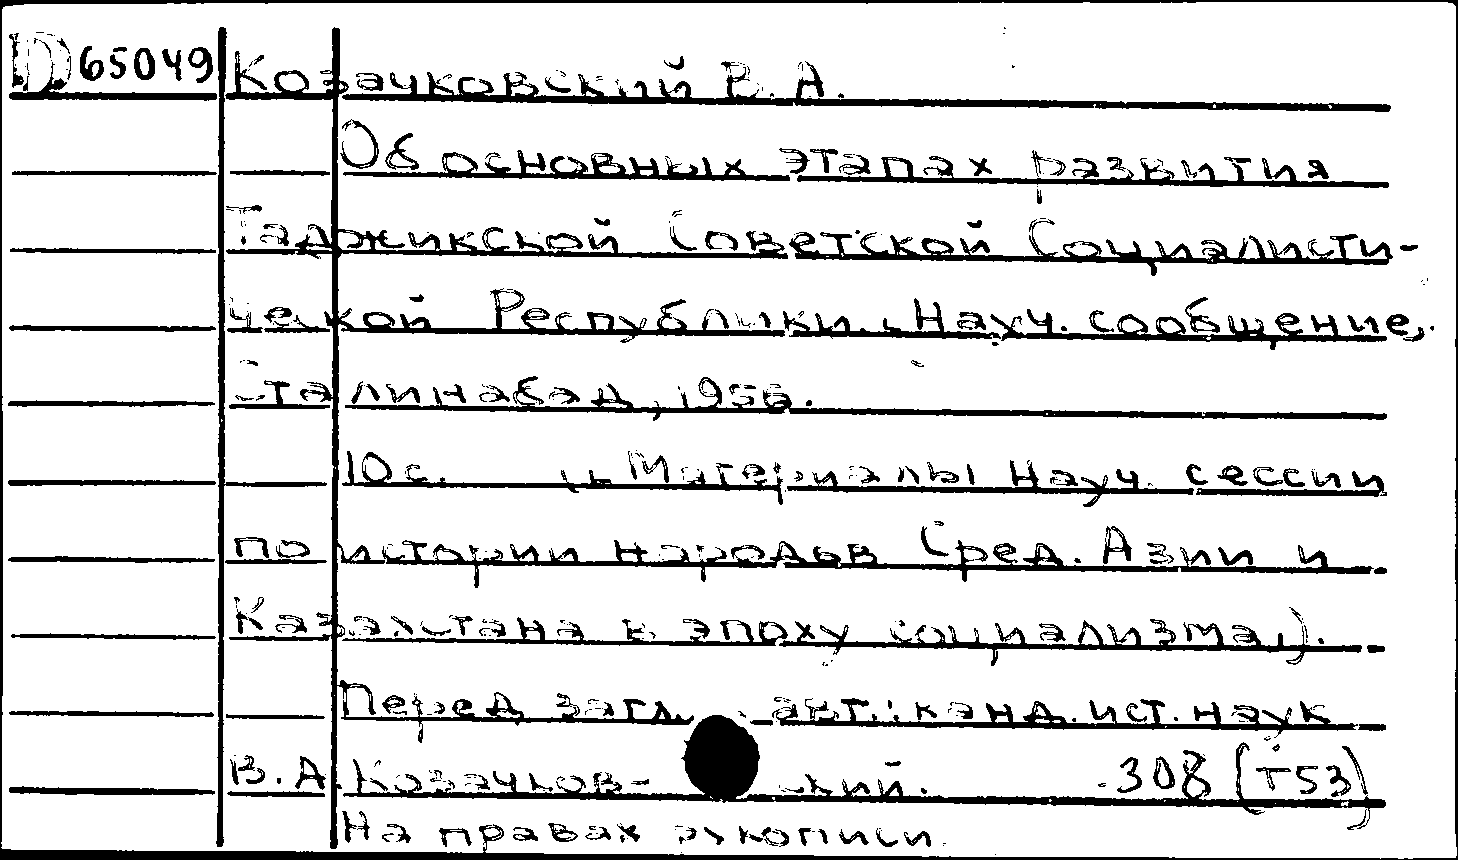 D 65049 Козачковский В. А.
Об основных этапах развития
Таджикской Советской Социалисти-
ческой Республики. Науч. сообщение.
Сталинабад, 1956.
10 с. (Материалы науч. сессии
по истории народов Сред. Азии и
Казахстана в эпоху социализма).
Перед загл. авт.: канд. ист. наук
В. А. Козачков- ский. 308 (Т53)
На правах рукописи.